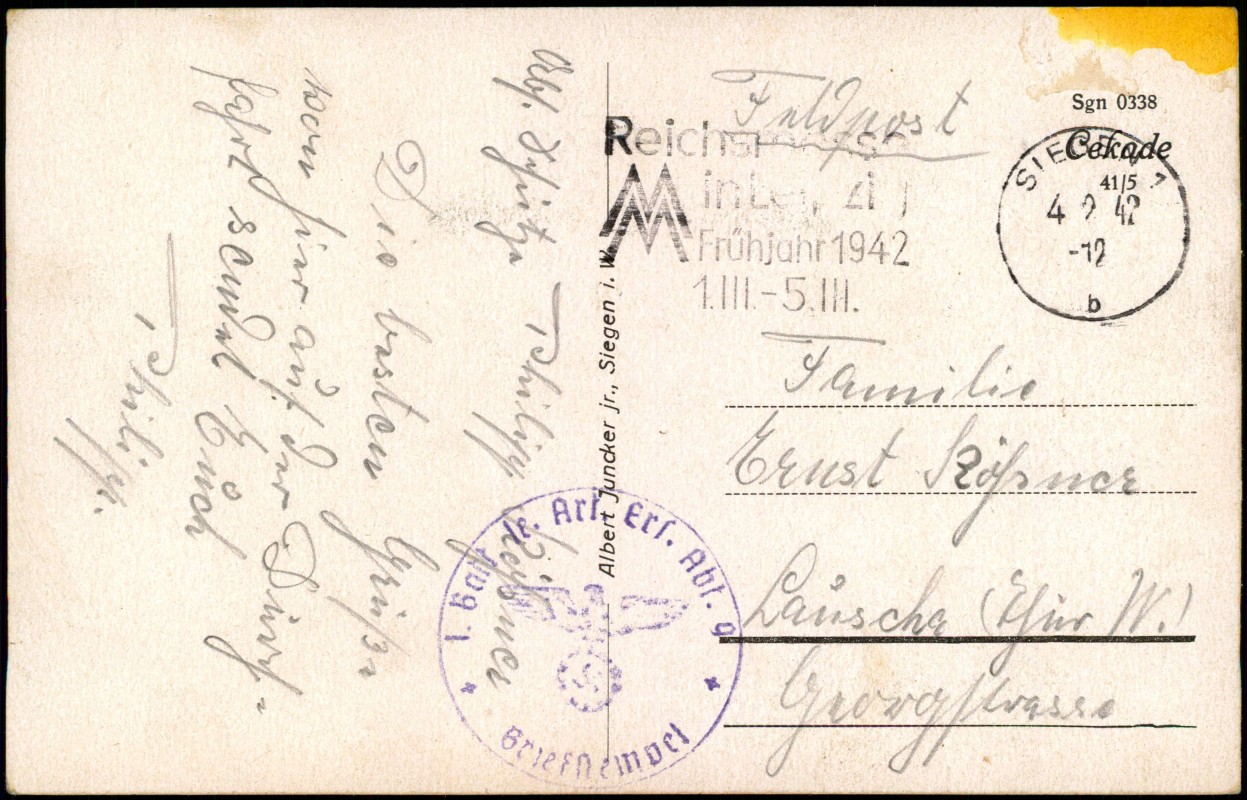 Abs. Schütze Philipp Rößner
Die besten Grüße
von hier auf der Durch-
fahrt sendet Euch
Philipp.
Albert Juncker jr., Siegen i. W.
Feldpost
Reichsmesse
in Leipzig
Frühjahr 1942
1.III.-5.III.
Sgn 0338
Cekade
41/5
SIEGEN 1
4 2 42
-12
b
Familie
Ernst Rößner
Lauscha (Thür W.)
Georgstrasse
1. Batt. le. Art. Ers. Abt. 9
Briefstempel